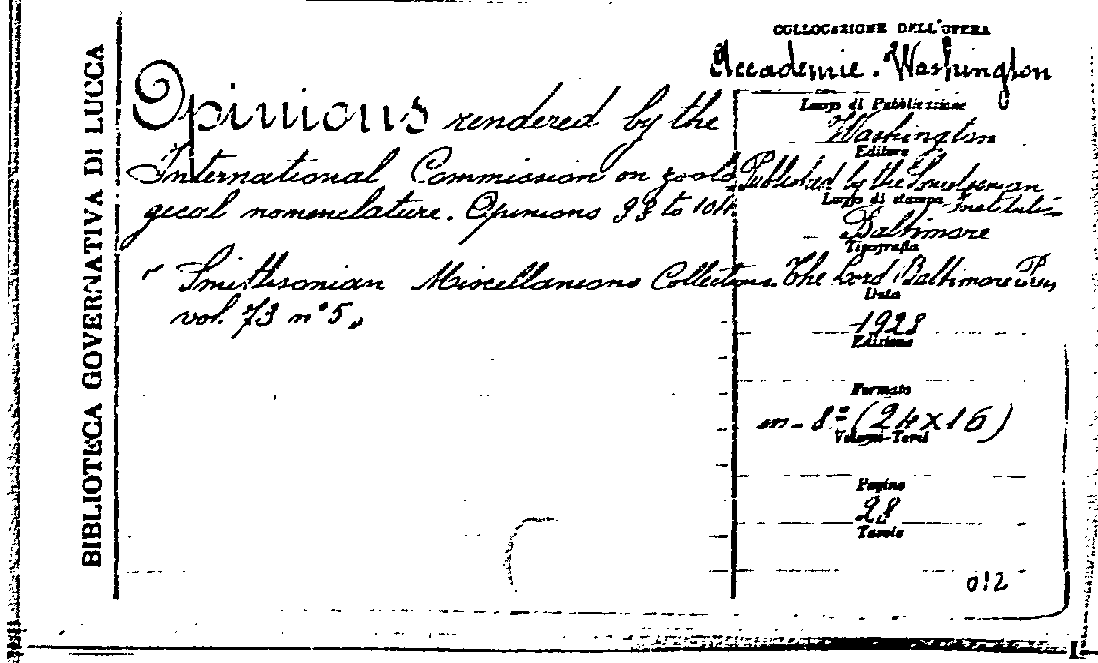 BIBLIOTECA GOVERNATIVA DI LUCCA
COLLOCAZIONE DELL'OPERA
Accademie. Washington
Opinions rendered by the
International Commission on zoolo
gical nomenclature. Opinions 98 to 104.
" Smithsonian Miscellaneous Collections.
vol. 73 n° 5 "
Luogo di Pubblicazione
Washington
Editore
Published by the Smithsonian
Instituti-
Luogo di stampa
Baltimore
Tipografia
The Lord Baltimore Press
Data
1928
Edizione
Formato
in-8° (24x16)
Volumi-Tomi
Pagine
28
Tavole
012